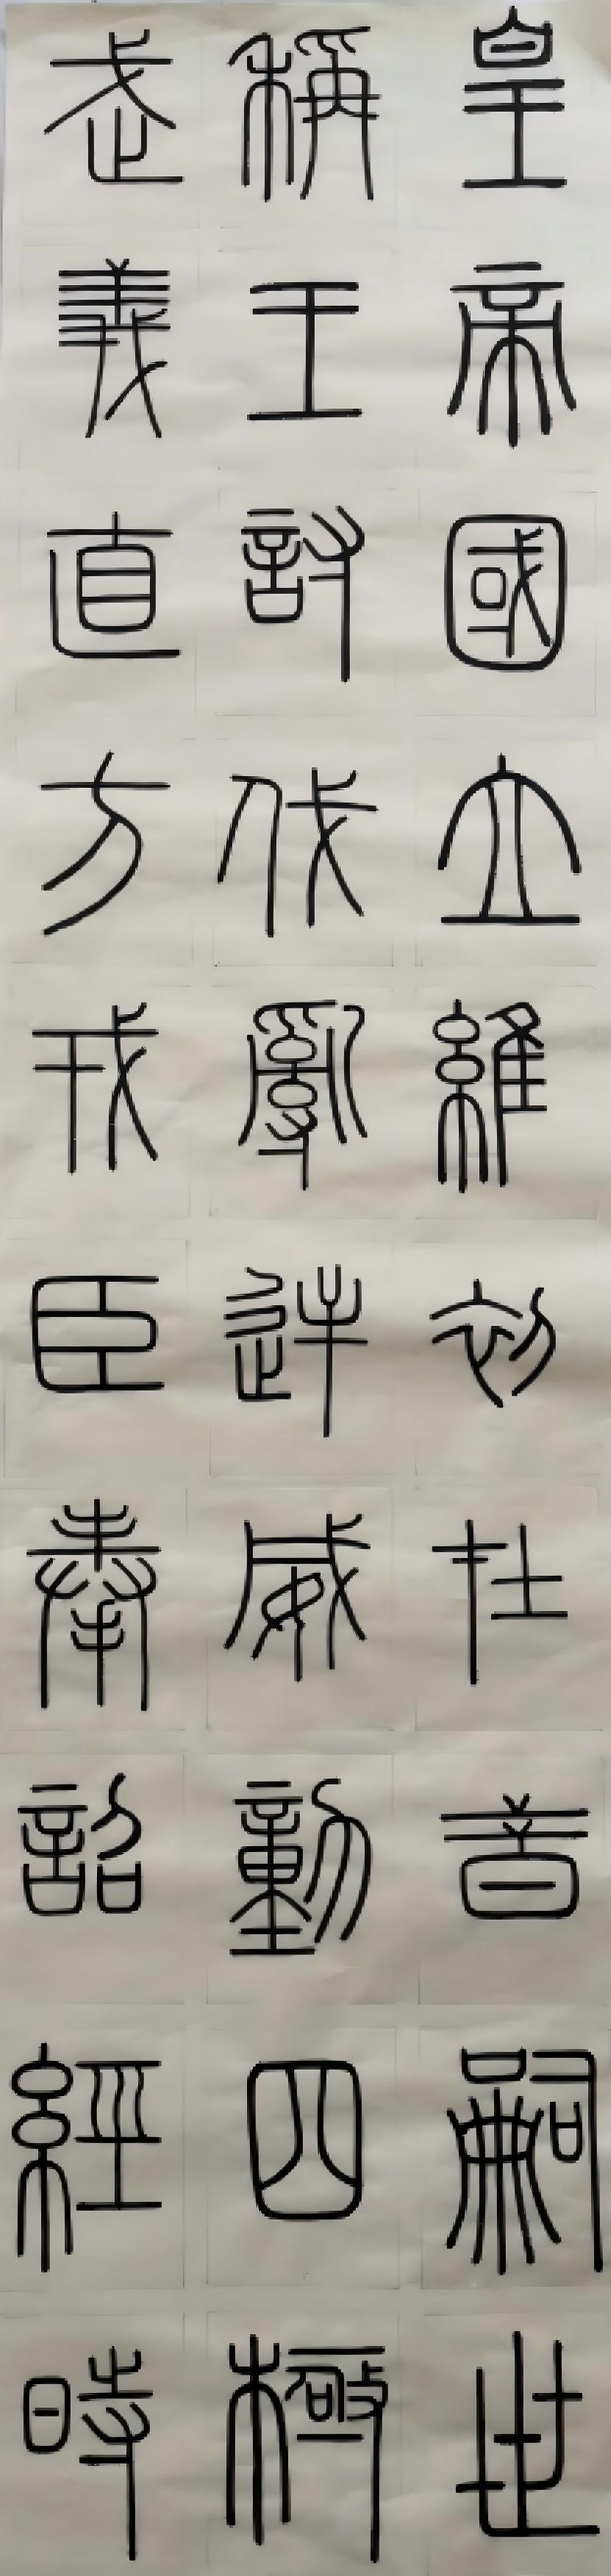 皇帝國立維初在昔嗣世
稱王討伐亂逆威動四極
武義直方戎臣奉詔經時